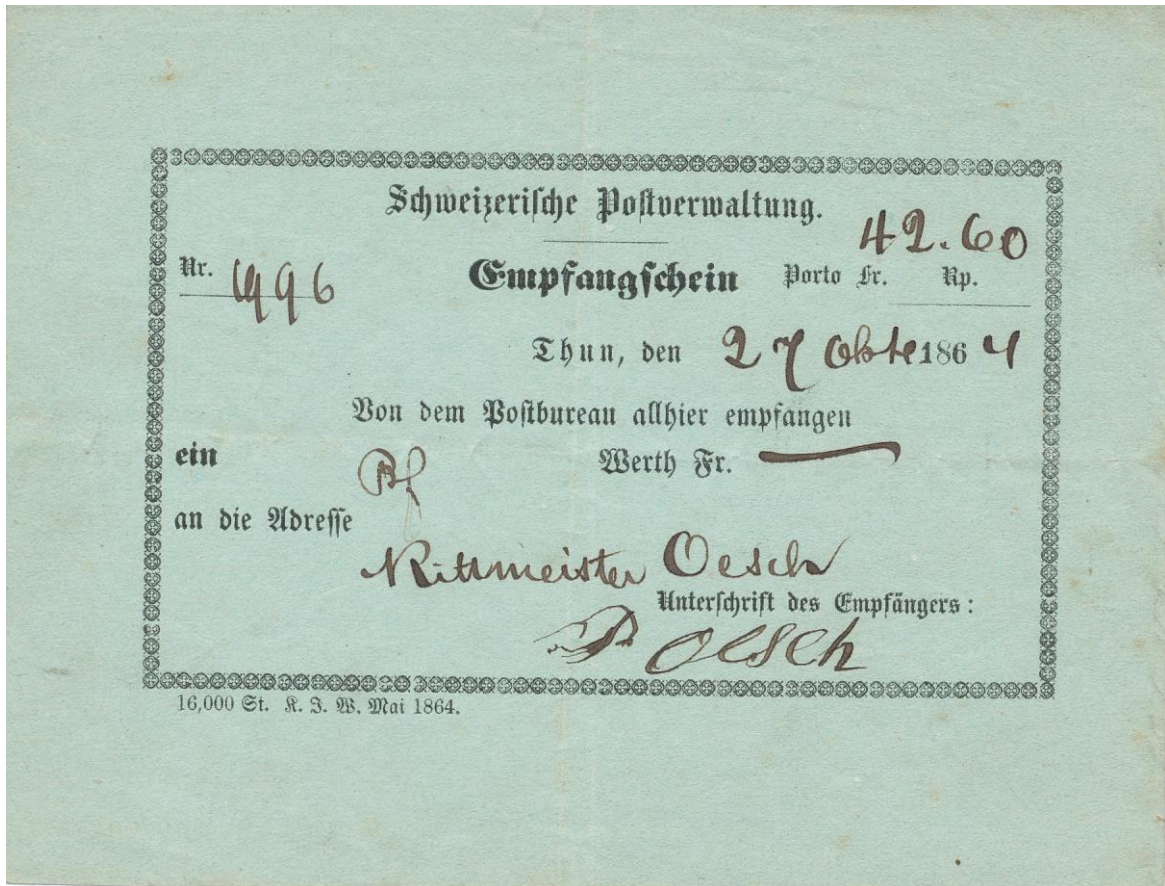 Schweizerische Postverwaltung.
42.60
Nr. 1996 Empfangschein Porto Fr. Rp.
Thun, den 27 Okte 1864
Von dem Postbureau allhier empfangen
ein Werth Fr. —
an die Adresse
Rittmeister Oesch
Unterschrift des Empfängers:
Oesch
16,000 St. K. J. W. Mai 1864.